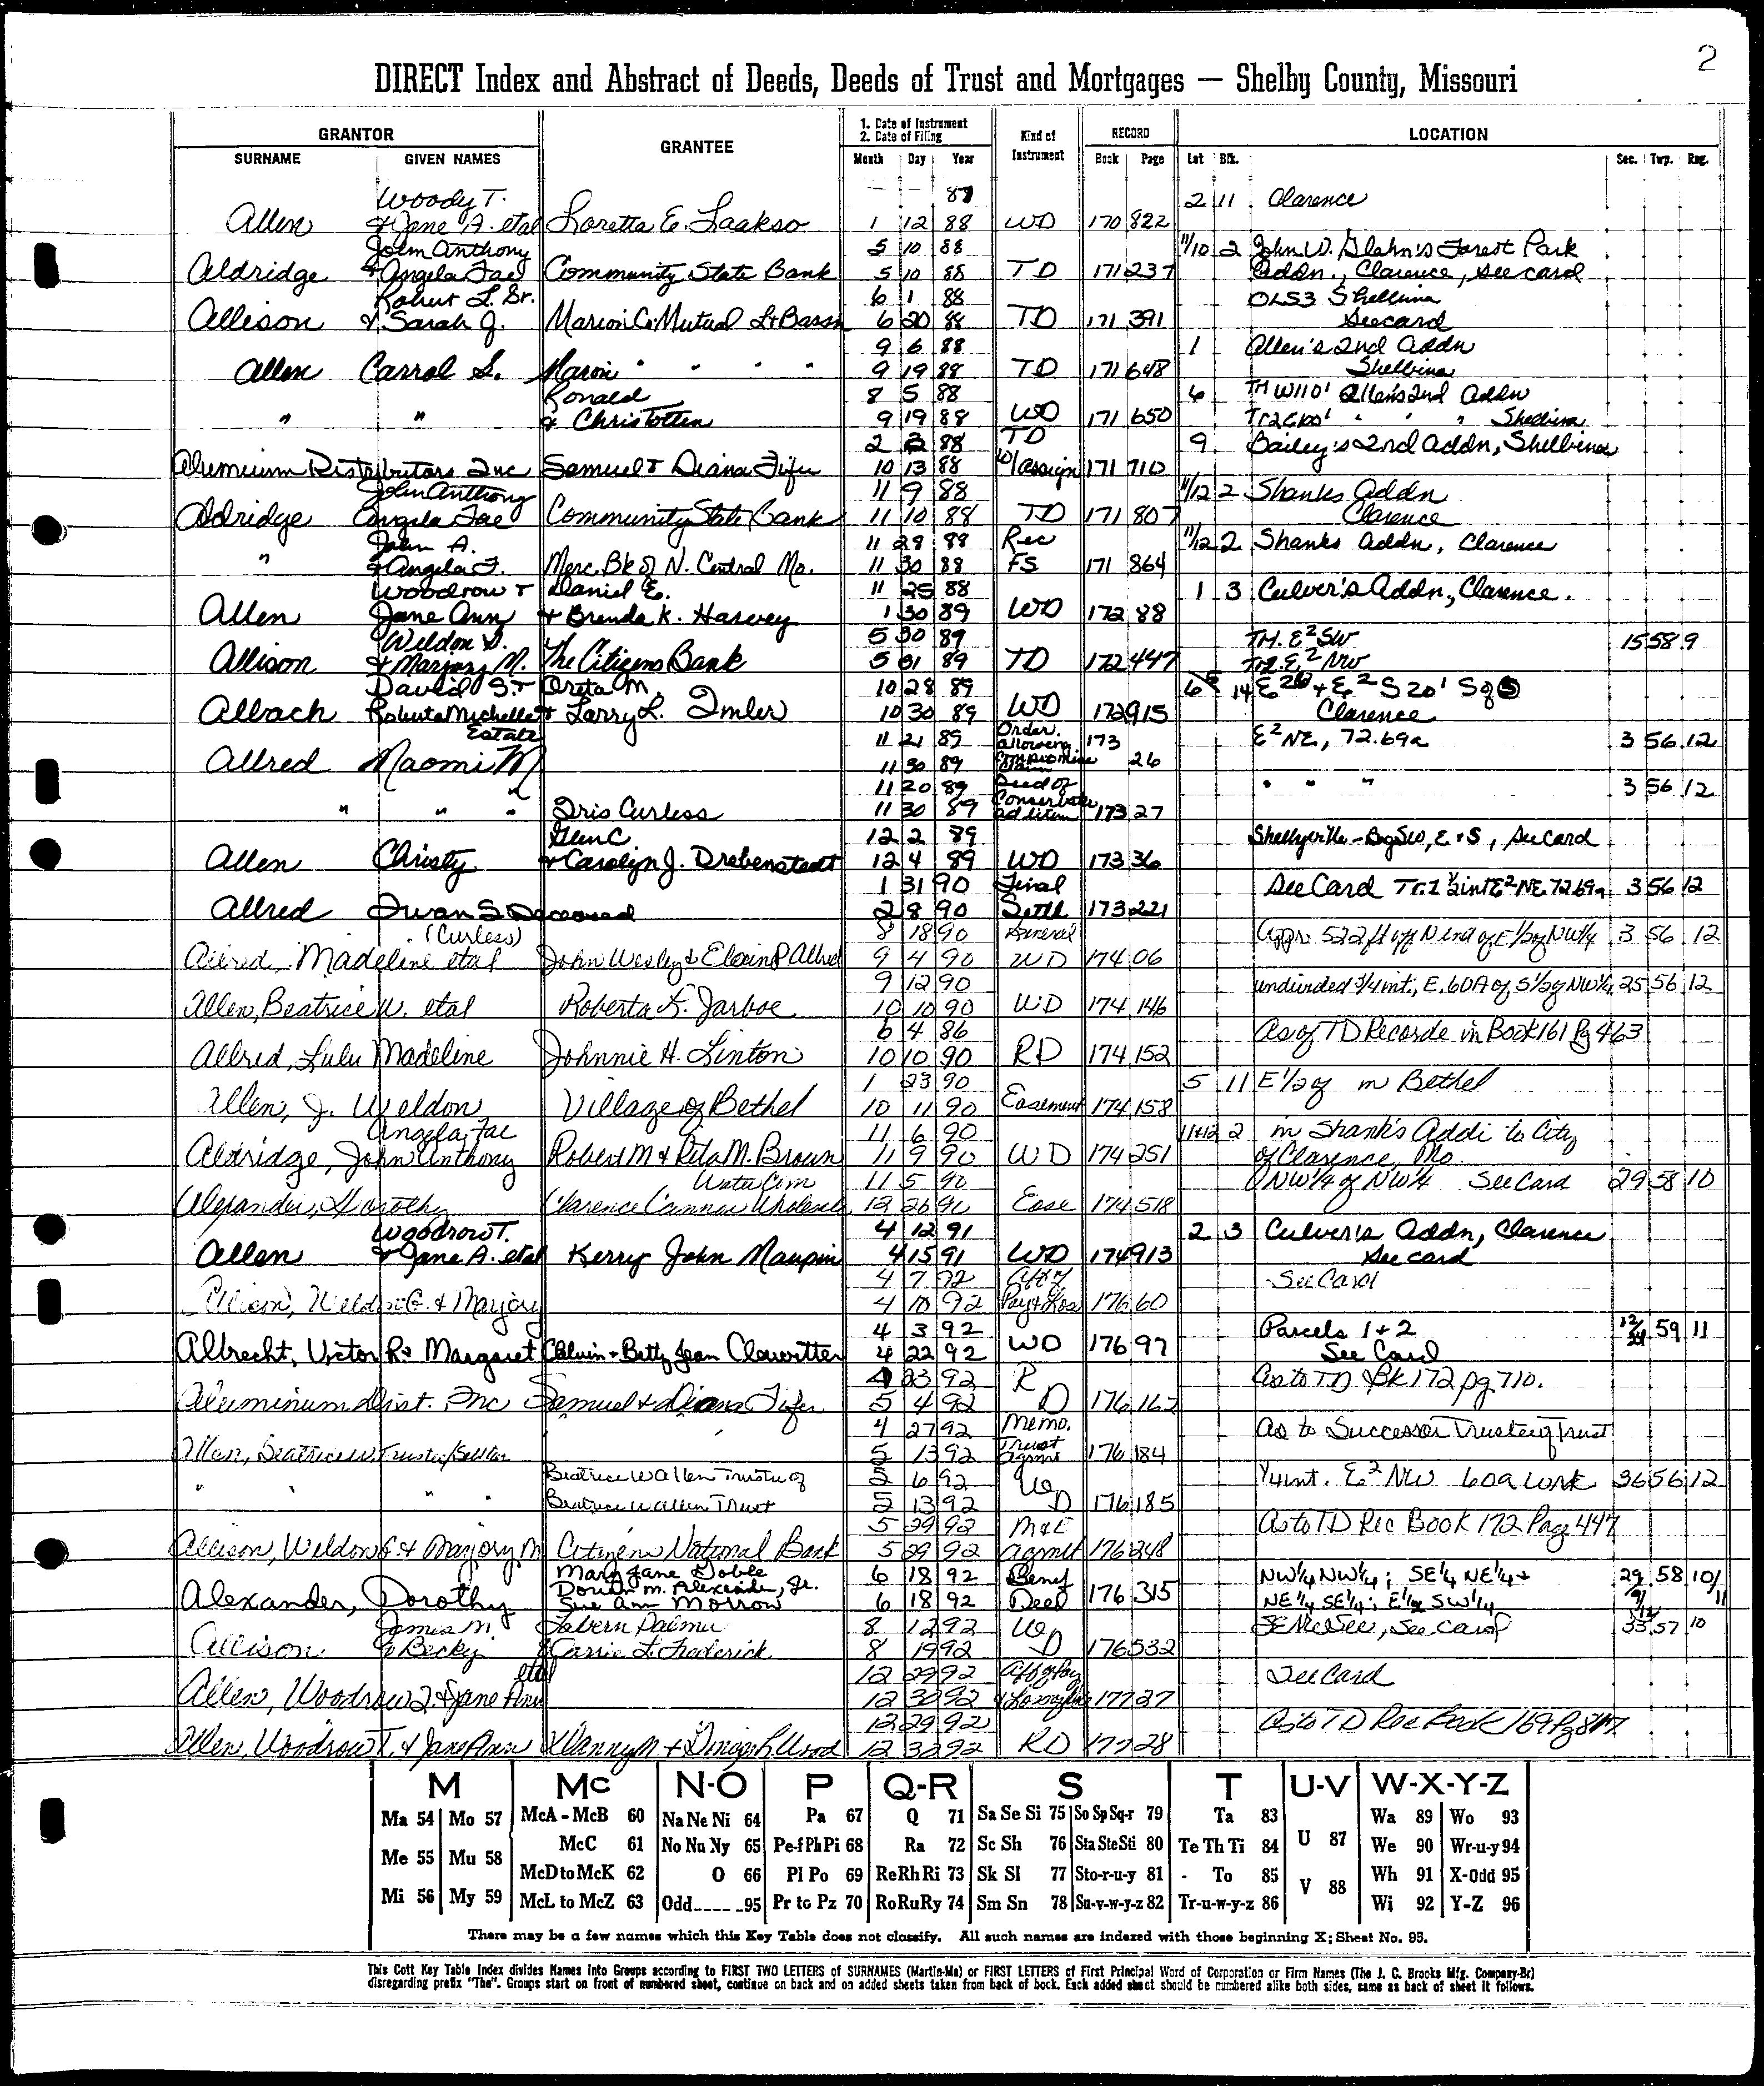 2
DIRECT Index and Abstract of Deeds, Deeds of Trust and Mortgages — Shelby County, Missouri
GRANTOR GRANTEE 1. Date of Instrument 2. Date of Filing Kind of Instrument RECORD LOCATION
SURNAME GIVEN NAMES Month Day Year Book Page Lot Blk. Sec. Twp. Rng.
Woody T. — — 87 2 11 Clarence
Allen & Jane A. etal Loretta E. Laakso 1 12 88 WD 170 822
John Anthony 5 10 88 11/10 2 John W. Glahn's Forest Park
Aldridge & Angela Fae Community State Bank 5 10 88 TD 171 237 Addn., Clarence, see card
Robert L. Sr. 6 1 88 OLS3 Shelbina
Allison & Sarah J. Marion Co Mutual L+B assn 6 20 88 TD 171 391 See card
9 6 88 1 Allen's 2nd Addn
Allen Carrol S. Marion " " " " 9 19 88 TD 171 648 Shelbina
Ronald 8 5 88 6 W110' Allen's 2nd Addn
" " & Chris Totten 9 19 88 WD 171 650 " " " Shelbina
2 2 88 TD 9 Bailey's 2nd Addn, Shelbina
Alumium Distributors Inc Samuel & Diana Fifer 10 13 88 W/assign 171 710
John Anthony 11 9 88 11/12 2 Shanks Addn
Aldridge Angela Fae Community State Bank 11 10 88 TD 171 807 Clarence
John A. 11 29 88 Rec 11/12 2 Shanks Addn, Clarence
" & Angela F. Merc. Bk of N. Central Mo. 11 30 88 FS 171 864
Woodrow T Daniel E. 11 25 88 1 3 Culver's Addn, Clarence.
Allen Jane Ann & Brenda K. Harvey 1 30 89 WD 172 88
Weldon G. 5 30 89 E² SW 15 58 9
Allison & Marjory M. The Citizens Bank 5 31 89 TD 172 447 E² NW
David S. & Oreta M. 10 28 89 14 E² 6 + E² S 20' S of 5
Albach Roberta Michelle & Larry L. Imler 10 30 89 WD 172 915 Clarence
Estate 11 21 89 Order. allowing 173 E² NE, 72.69a 3 56 12
Allred Naomi M 11 30 89 Compromise Claim 26
11 20 89 Deed of " " " 3 56 12
" " " Iris Curless 11 30 89 Conservator ad litem 173 27
Glen C 12 2 89 Shelbyville - Beg SW, E+S, See Card
Allen Christy & Carolyn J. Drebenstedt 12 4 89 WD 173 36
1 31 90 Final See Card Tr. 1 ½ int E² NE 72.69a 3 56 12
Allred Iwan S Deceased 2 8 90 Settl 173 221
(Curless) 8 18 90 General Appr 522 ft off N end of E 1/2 of NW 1/4 3 56 12
Allred, Madeline etal John Wesley & Elvin P Allred 9 4 90 WD 174 06
9 12 90 undivided 3/4 int., E. 60A of S 1/2 of NW 1/4 25 56 12
Allen, Beatrice W. etal Roberta K. Jarboe 10 10 90 WD 174 146
6 4 86 As of TD Recorde in Book 161 Pg 463
Allred, Lulu Madeline Johnnie H. Linton 10 10 90 RD 174 152
1 23 90 5 11 E 1/2 of in Bethel
Allen, J. Weldon Village of Bethel 10 11 90 Easement 174 158
Angela Fae 11 6 90 11+12 2 in Shank's Addi to City
Aldridge, John Anthony Robert M & Rita M. Brown 11 9 90 WD 174 251 of Clarence, Mo.
Water Com 11 5 90 NW 1/4 of NW 1/4 See Card 29 58 10
Alexander, Dorothy Clarence Cannon Wholesale 12 26 90 Ease 174 518
Woodrow T. 4 12 91 2 3 Culver's Addn, Clarence
Allen & Jane A. etal Kerry John Maupin 4 15 91 WD 174 913 See card
4 7 92 Aff of See Card
Allison, Weldon G. & Marjory 4 10 92 Pay & Los 176 60
4 3 92 Parcels 1 + 2 12/24 59 11
Albrecht, Victor R. & Margaret Calvin + Betty Jean Clawitter 4 22 92 WD 176 97 See Card
4 23 92 R As to TD Bk 172 pg 710.
Aluminum Dist. Inc Samuel & Diana Fifer 5 4 92 D 176 162
4 27 92 Memo. As to Successor Trustee of Trust
Allen, Beatrice W. Trustee/Settlor 5 13 92 Trust Agmt 176 184
Beatrice W Allen Trustee of 5 6 92 W 1/4 int. E² NW 60a 36 56 12
" " " " Beatrice W Allen Trust 5 13 92 D 176 185
5 29 92 M & E As to TD Rec Book 172 Page 447
Allison, Weldon G. & Marjory M Citizens National Bank 5 29 92 agmt 176 248
Mary Jane Doble 6 18 92 Benef NW 1/4 NW 1/4; SE 1/4 NE 1/4 + 29 58 10/
Alexander, Dorothy Sue Ann Morrow 6 18 92 Deed 176 315 NE 1/4 SE 1/4; E 1/2 SW 1/4 11
James M Lavern Palmer 8 12 92 W See Card 33 57 10
Allison & Becky & Carrie L. Frederick 8 19 92 D 176 532
etal 12 29 92 Aff of Pay See Card
Allen, Woodrow T. & Jane Ann 12 30 92 177 27
12 29 92 As to TD Rec Book 169 Pg 817
Allen, Woodrow T. & Jane Ann Wood 12 30 92 RD 177 28
M Mc N-O P Q-R S T U-V W-X-Y-Z
Ma 54 Mo 57 McA - McB 60 Na Ne Ni 64 Pa 67 Q 71 Sa Se Si 75 So Sp Sq-r 79 Ta 83 U 87 Wa 89 Wo 93
Me 55 Mu 58 McC 61 No Nu Ny 65 Pe-f Ph Pi 68 Ra 72 Sc Sh 76 Sta Ste Sti 80 Te Th Ti 84 We 90 Wr-u-y 94
McD to McK 62 O 66 Pl Po 69 Re Rh Ri 73 Sk Sl 77 Sto-r-u-y 81 To 85 V 88 Wh 91 X-Odd 95
Mi 56 My 59 McL to McZ 63 Odd 95 Pr to Pz 70 Ro Ru Ry 74 Sm Sn 78 Su-v-w-y-z 82 Tr-u-w-y-z 86 Wi 92 Y-Z 96
There may be a few names which this Key Table does not classify. All such names are indexed with those beginning X; Sheet No. 95.
This Cott Key Table Index divides Names into Groups according to FIRST TWO LETTERS of SURNAMES (Martin-Ma) or FIRST LETTERS of First Principal Word of Corporation or Firm Names (The J. C. Brooks Mfg. Company-Br)
disregarding prefix "The". Groups start on front of numbered sheet, continue on back and on added sheets taken from back of book. Each added sheet should be numbered alike both sides, same as back of sheet it follows.